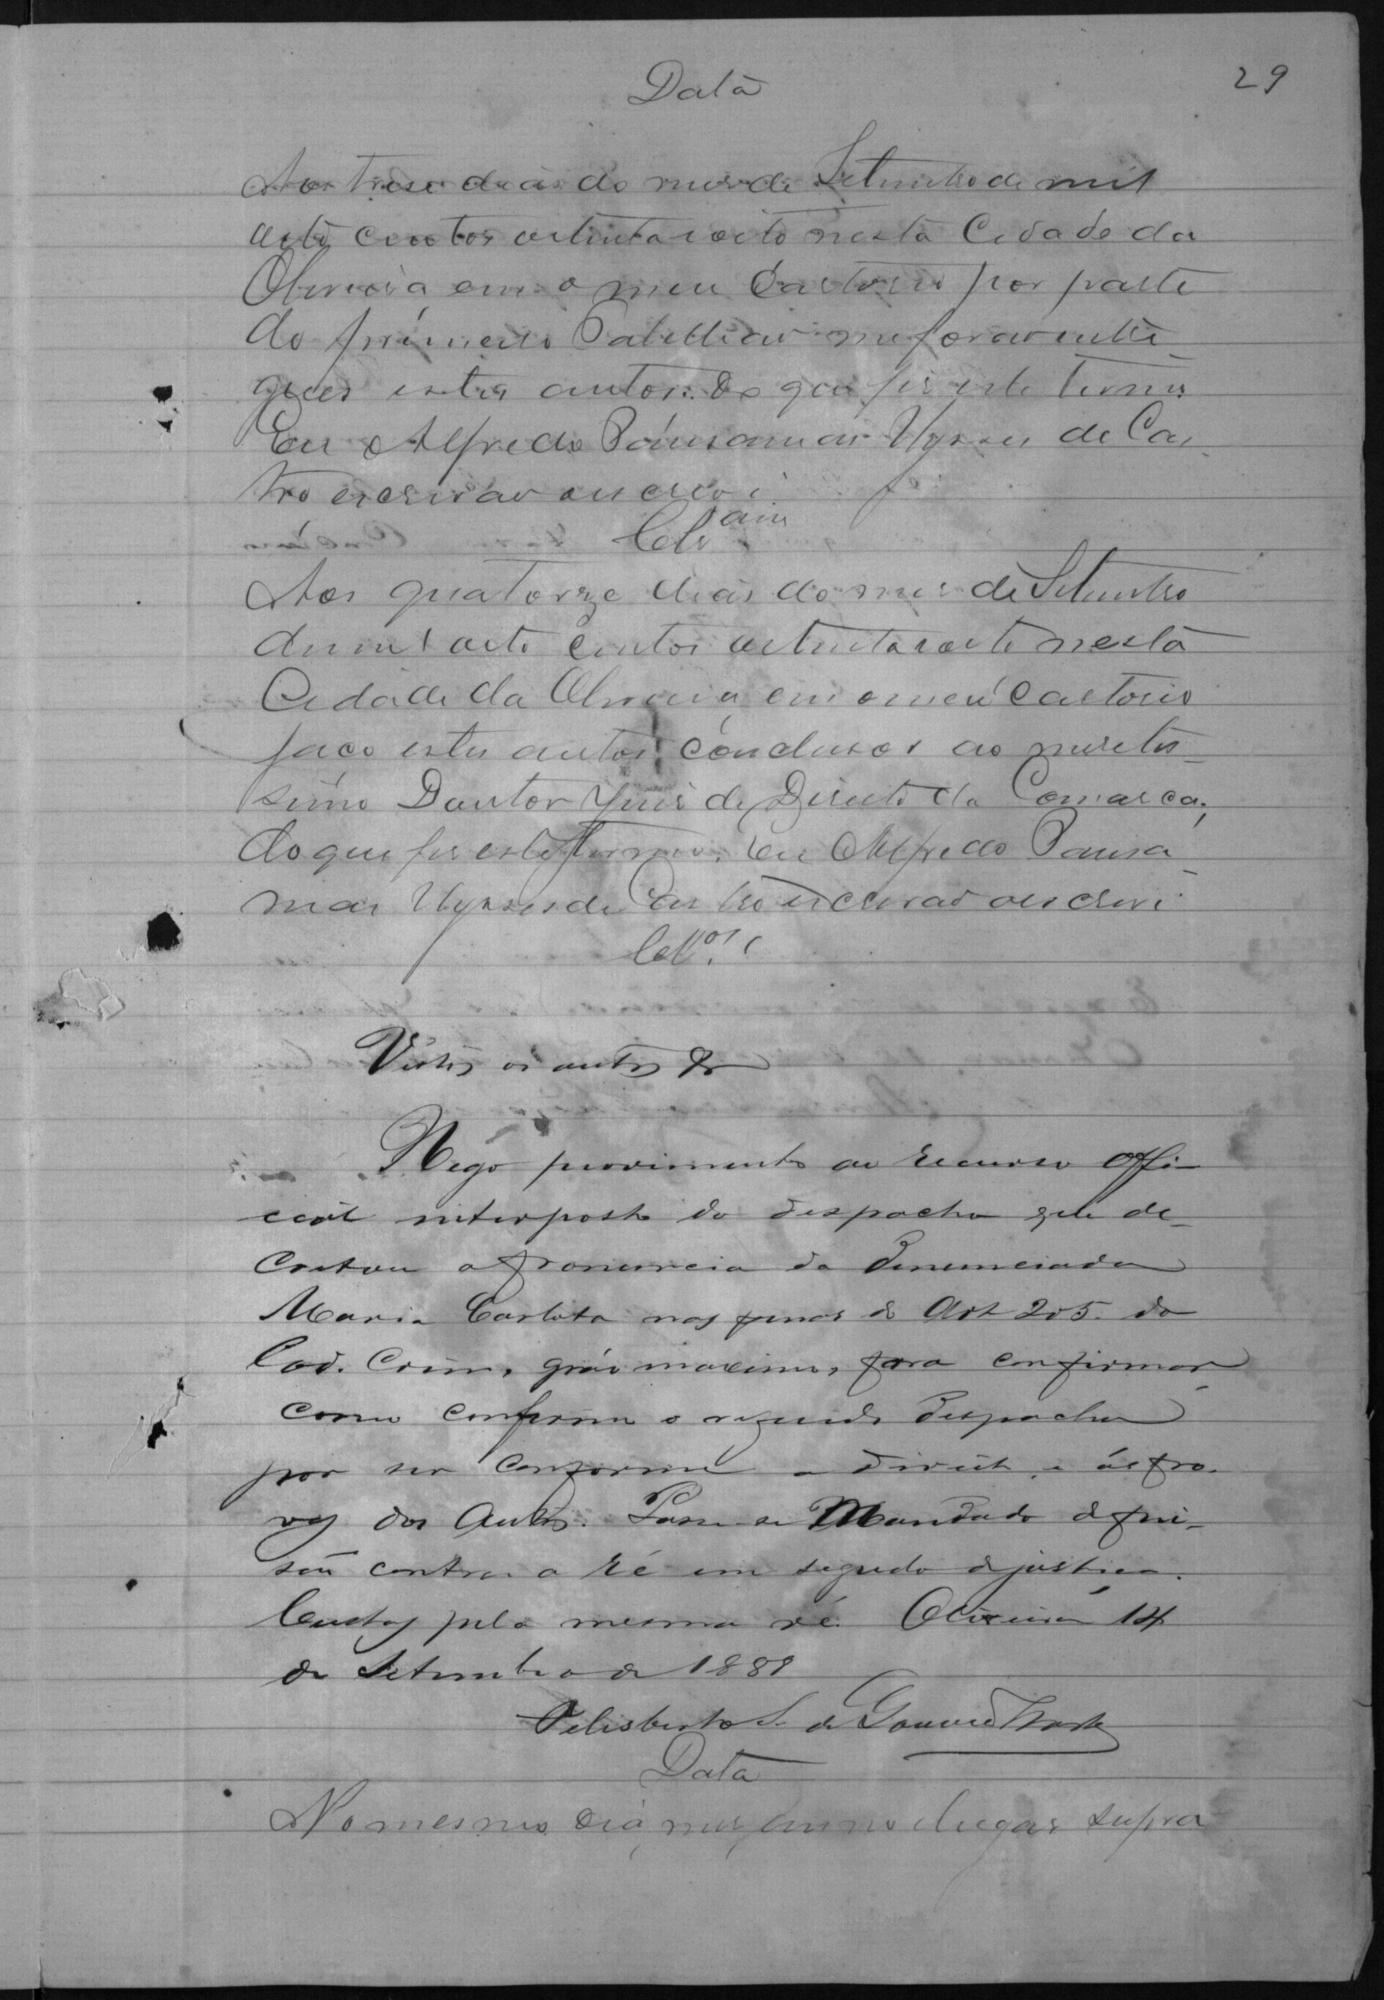 29
Data
Aos trese dias do mes de Setembro de mil
oito centos oitenta e oito nesta Cidade da
Oliveira em o meu Cartorio por parte
do primeiro Tabelliao me forao entre
gues estes autos: do que fis este termo
Eu Alfredo Pausanias Ulysses de Cas
tro escrivao o escrevi
Clsam
Aos quatorze dias do mes de Setembro
de mil oito centos oitenta e oito nesta
Cidade da Oliveira em o meu Cartorio
faço estes autos conclusos ao mireta_
simo Doutor Juis de Direito da Comarca;
do que fis este termo. Eu Alfredo Pausa_
nias Ulysses de Castro escrivao o escrevi
Clos.
Vistos os autos &
Nego provimento ao recurso offi_
cial interposto do despacho que de_
cretou a pronuncia da denunciada
Maria Carlota nas penas do Art 205. do
Cod. Crim, gráo maximo, para confirmar
como confirmo o segundo despacho
por ser conforme a direito e ás pro_
vas dos Autos. Passe se Mandado de pri_
são contra a ré em segredo de justiça.
Custas pela mesma ré. Oliveira 14
de Setembro de 1888
Felisberto S. de Gouvea Horta
Data
No mesmo dia, mes, anno e lugar supra